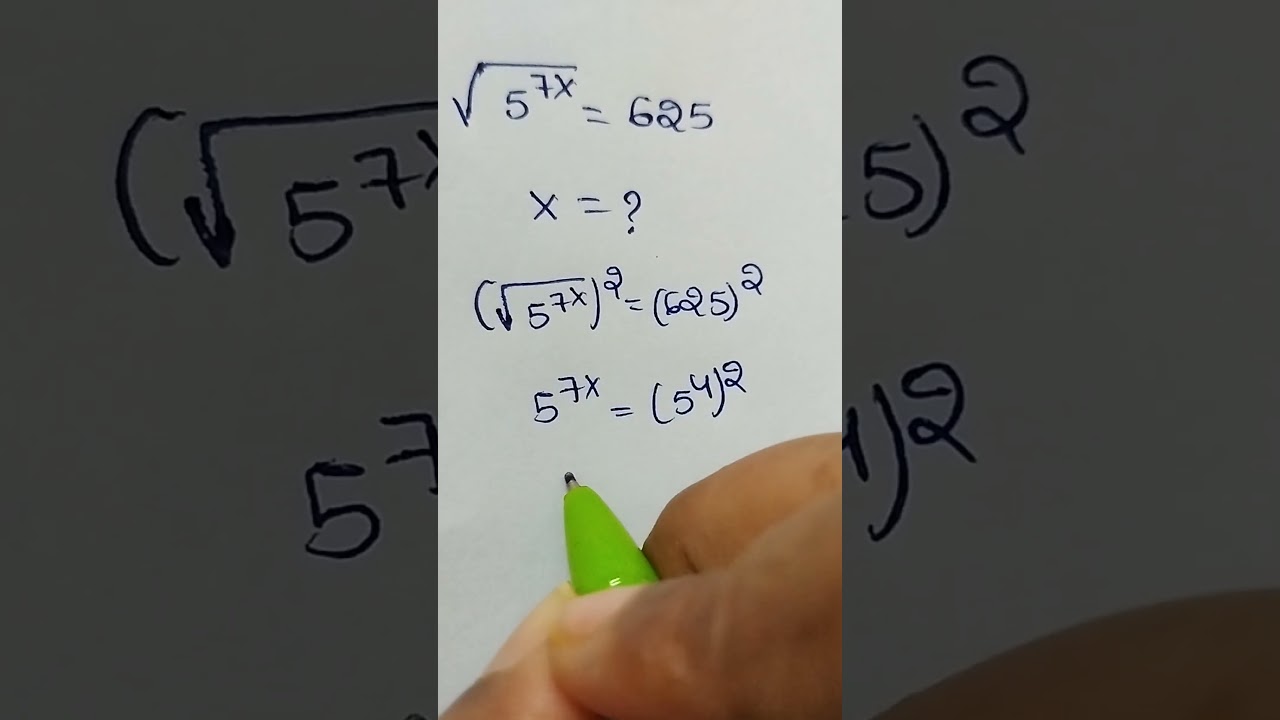 √5^7x = 625
x = ?
(√5^7x)^2 = (625)^2
5^7x = (5^4)^2